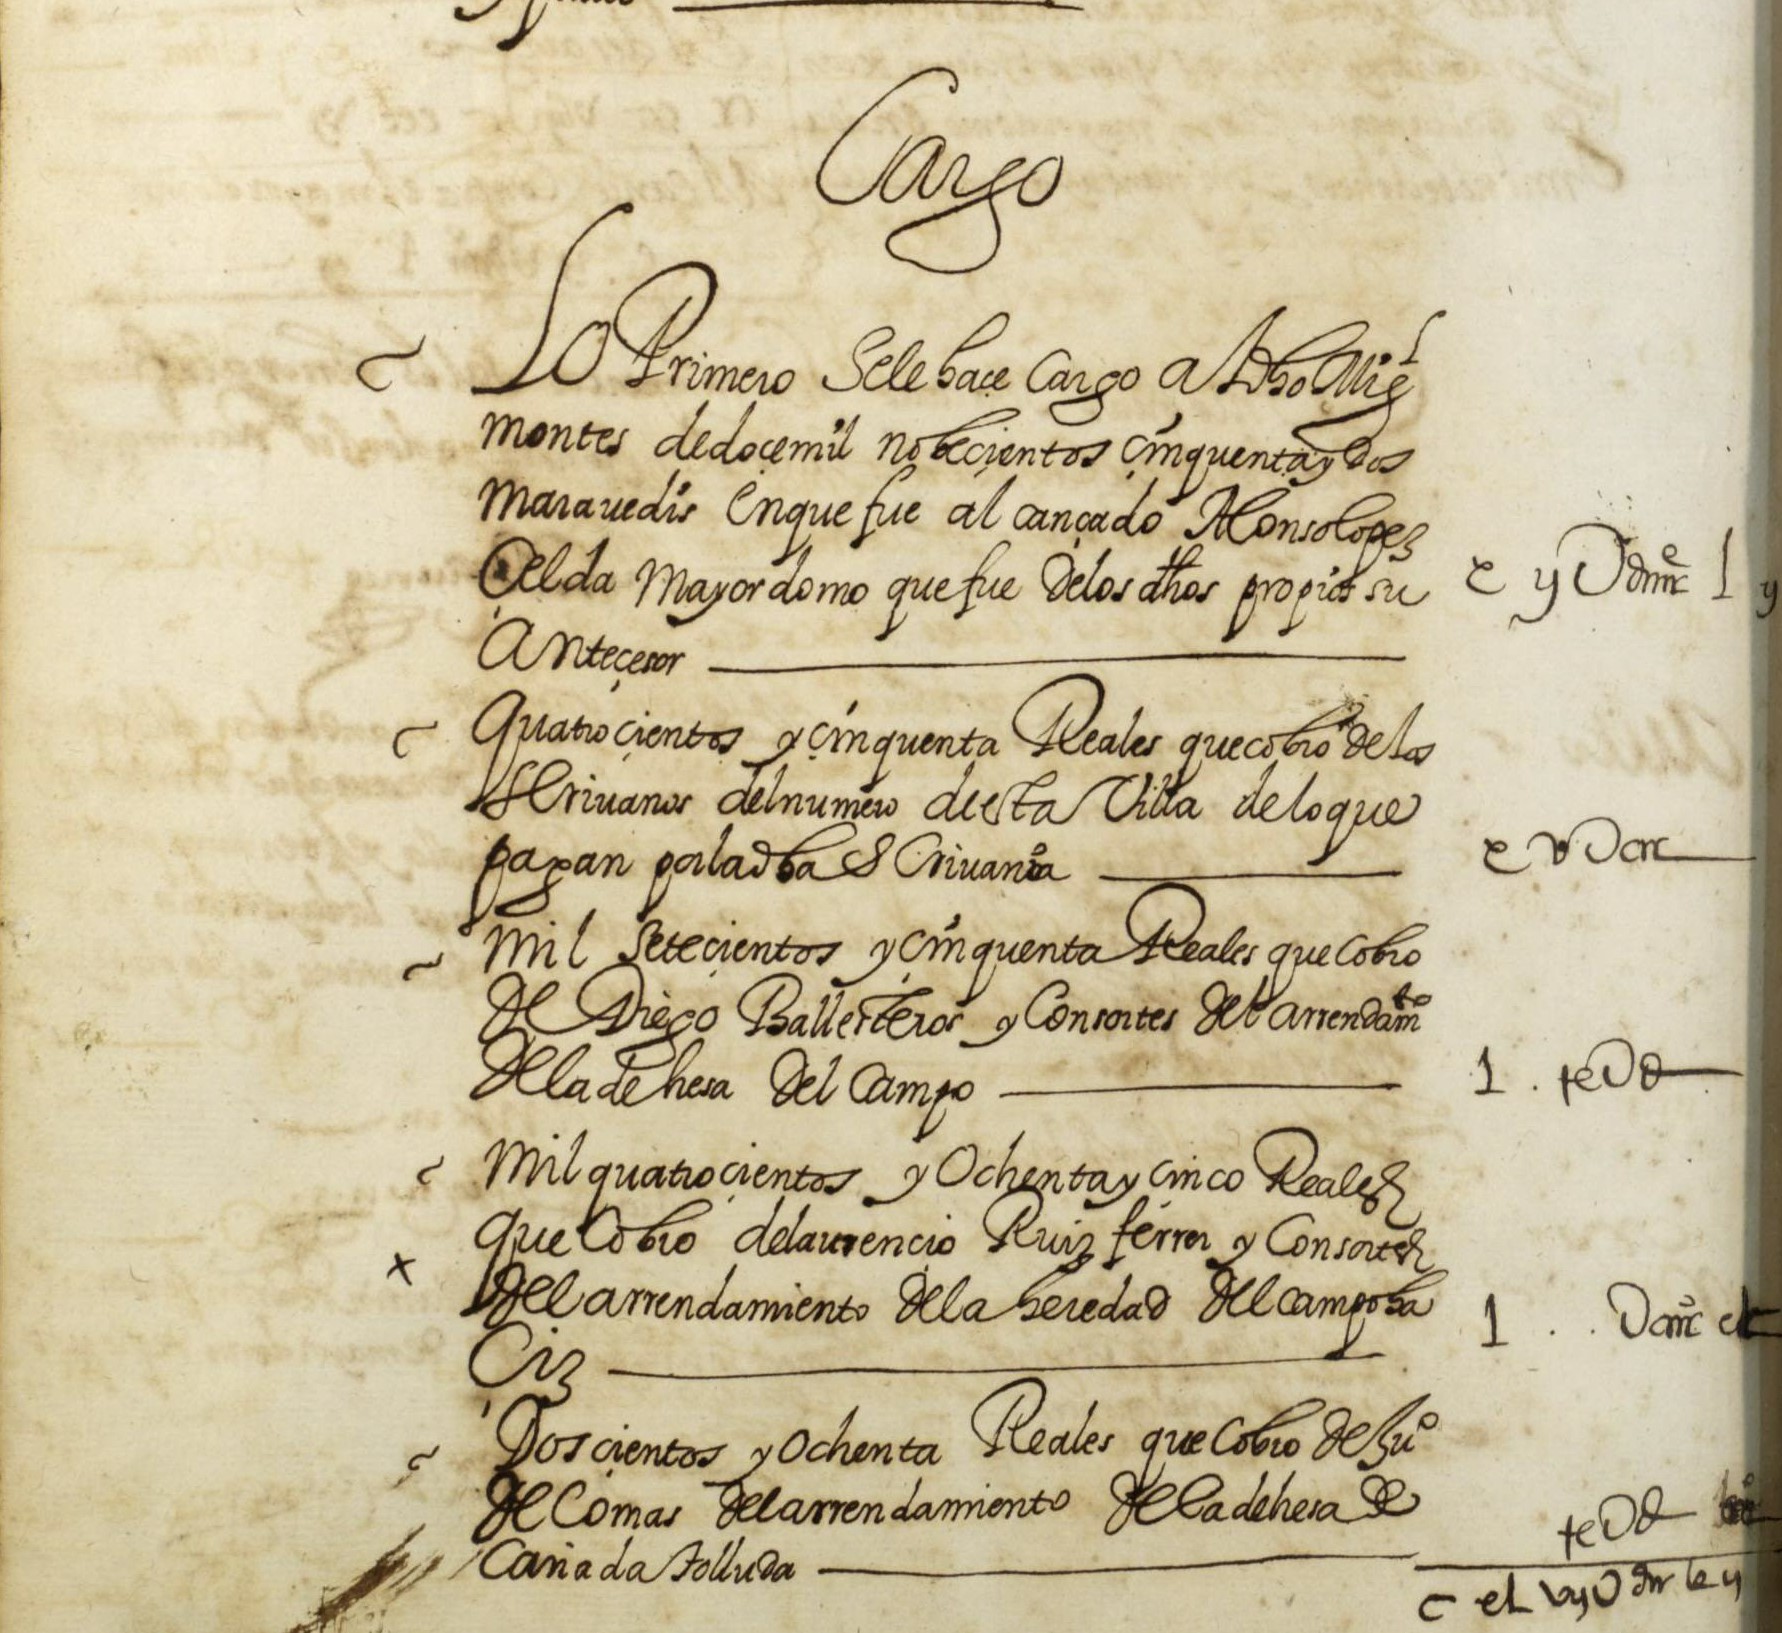 Cargo
Lo Primero Sele hace Cargo al dho Migl
montes dedoçemil nobeçientos çinquenta y dos
marauedis Enque fue alcançado Alonso lopez
Çelda Mayordomo que fue delos dhos propios su
Anteçesor
quatroçientos y çinquenta Reales que cobro de los
Scriuanos del numero desta Villa delo que
pagan por la dha Scriuania
Mil seteçientos y çinquenta Reales que cobro
de Diego Ballesteros y Consortes del arrendamto
dela dehesa del Campo
Mil quatroçientos y Ochenta y cinco Reales
que Cobro de laurençio Ruiz ferrer y Consortes
del arrendamiento dela heredad del campo ha
Çiz
Dosçientos y Ochenta Reales que Cobro de Ju°
de Comas del arrendamiento dela dehesa de
Cañada tolluda